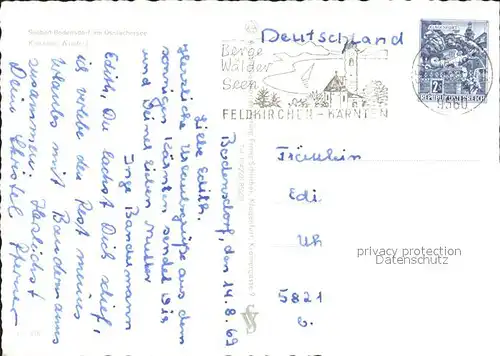 Seebad Bodensdorf am Ossiachersee
Kärnten, Austria
Deutschland
Berge
Wälder
Seen
FELDKIRCHEN - KÄRNTEN
REPUBLIK ÖSTERREICH
2S
9560
Bodensdorf, den 14.8.69
Liebe Edith.
Herzliche Urlaubsgrüße aus dem
sonnigen Kärnten sendet Dir
und Deiner lieben Mutter
Inge Bandermann
Edith, Du lachst Dich schief,
ich verlebe den Rest meines
Urlaubs mit Bandermanns
zusammen. Herzlichst
Deine Christel
Fräulein
Edi
Uh
5821
B.
privacy protection
Datenschutz